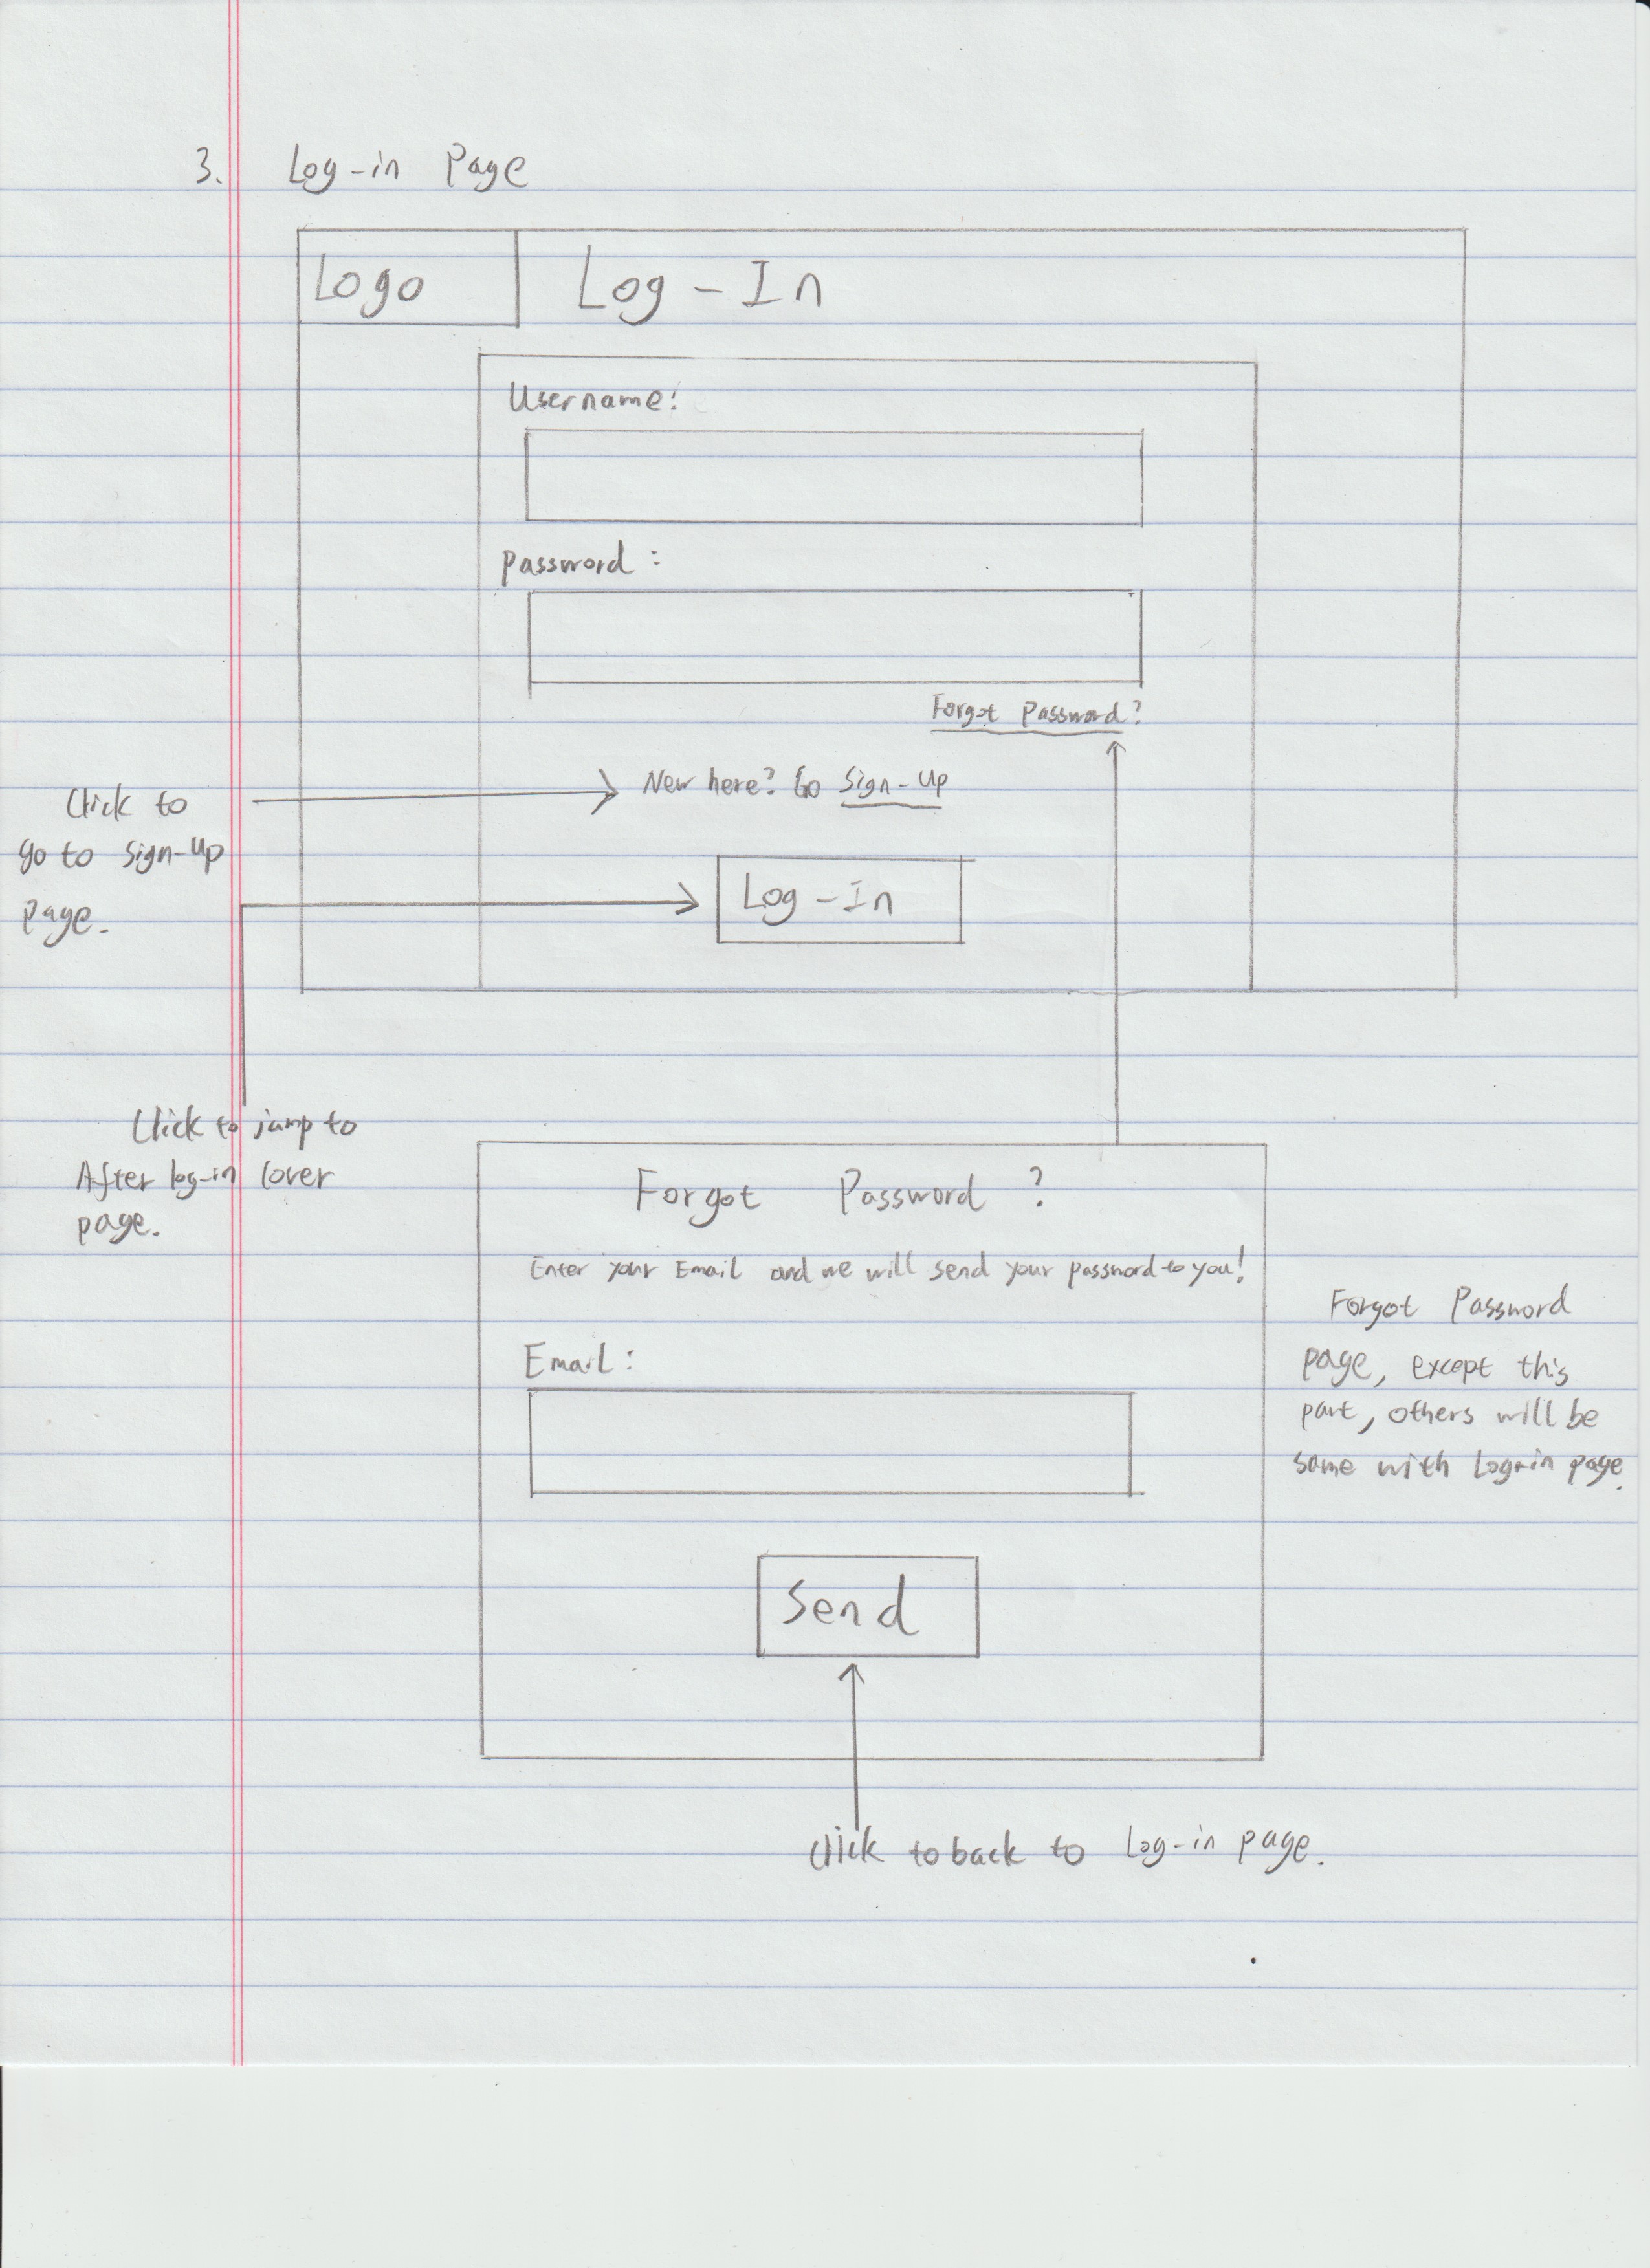 3. Log-in Page
Logo
Log-In
Username:
Password:
Forgot Password?
New here? Go Sign-Up
Click to
go to sign-up
page.
Log-In
Click to jump to
After log-in cover
page.
Forgot Password ?
Enter your Email and we will send your password to you!
Email:
Send
Forgot Password
page, except this
part, others will be
same with Log-in page.
Click to back to Log-in page.